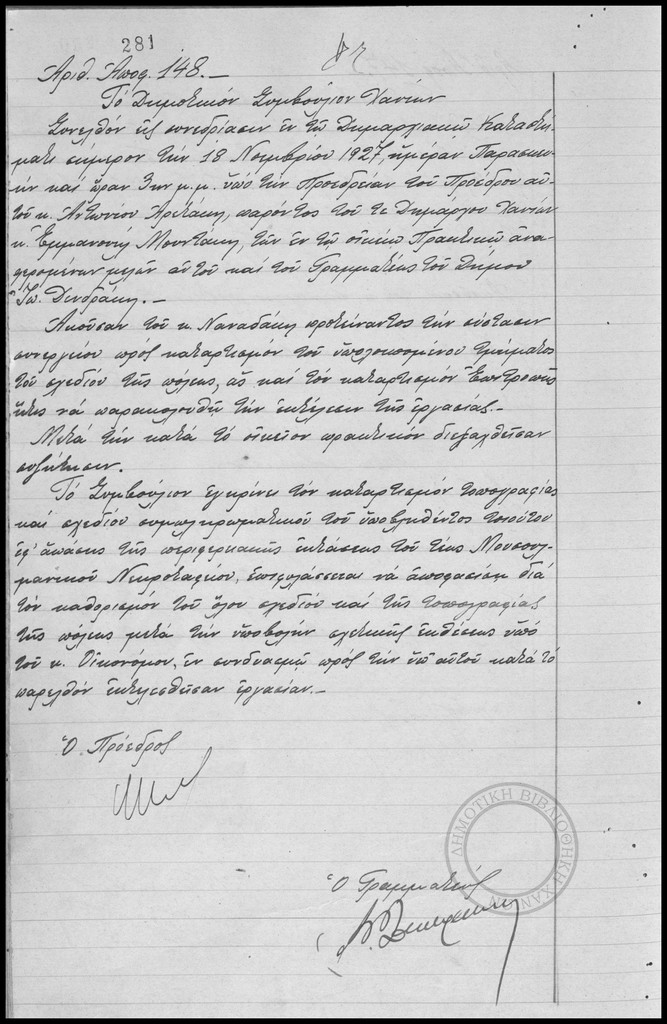 281
Ἀριθ. Ἀποφ. 148.—
Τό Δημοτικόν Συμβούλιον Χανίων
Συνελθόν εἰς συνεδρίασιν ἐν τῷ Δημαρχιακῷ Καταστή-
ματι σήμερον τήν 18 Νοεμβρίου 1927, ἡμέραν Παρασκευ-
ήν καί ὥραν 3ην μ.μ. ὑπό τήν Προεδρείαν τοῦ Προέδρου αὐ-
τοῦ κ. Ἀντωνίου παρόντος τοῦ τε Δημάρχου Χανίων
κ. Ἐμμανουήλ Μουντάκη, τῶν ἐν τῷ οἰκείῳ Πρακτικῷ ἀνα-
φερομένων μελῶν αὐτοῦ καί τοῦ Γραμματέως τοῦ Δήμου
Ἰω. Δενδράκη.—
Ἀκοῦσαν τοῦ κ. Ναναδάκη προτείναντος τήν σύστασιν
συνεργείου πρός καταρτισμόν τοῦ ὑπολοιπομένου τμήματος
τοῦ σχεδίου τῆς πόλεως, ὡς καί τόν καταρτισμόν Ἐπιτροπῆς
ἥτις νά παρακολουθῇ τήν ἐκτέλεσιν τῆς ἐργασίας.—
Μετά τήν κατά τό οἰκεῖον πρακτικόν διεξαχθεῖσαν
συζήτησιν.
Τό Συμβούλιον ἐγκρίνει τόν καταρτισμόν τοπογραφίας
καί σχεδίου συμπληρωματικοῦ τοῦ ὑποβληθέντος τοιούτου
ἐφ' ἁπάσης τῆς περιφερειακῆς ἐκτάσεως τοῦ τέως Μουσουλ-
μανικοῦ Νεκροταφείου, ἐπιφυλάσσεται νά ἀποφασίσῃ διά
τόν καθορισμόν τοῦ ὅλου σχεδίου καί τῆς τοπογραφίας
τῆς πόλεως μετά τήν ὑποβολήν σχετικῆς ἐκθέσεως ὑπό
τοῦ κ. Οἰκονόμου, ἐν συνδυασμῷ πρός τήν ὑπ' αὐτοῦ κατά τό
παρελθόν ἐκτελεσθεῖσαν ἐργασίαν.—
Ὁ Πρόεδρος
ΔΗΜΟΤΙΚΗ ΒΙΒΛΙΟΘΗΚΗ ΧΑΝ
Ὁ Γραμματεύς